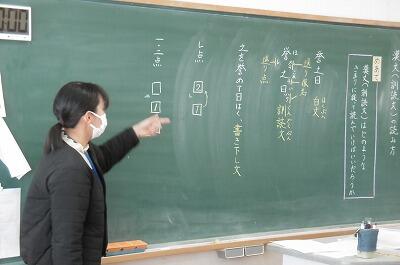 漢文（訓読文）の読み方
めあて
漢文（訓読文）はどのような
きまりに従って読んでいけばいいだろうか
誉之曰
はくぶん
白文
送り仮名
誉之曰
返り点
くんどくぶん
訓読文
之を誉めて曰はく、書き下し文
レ点
2
1
一・二点
1
00